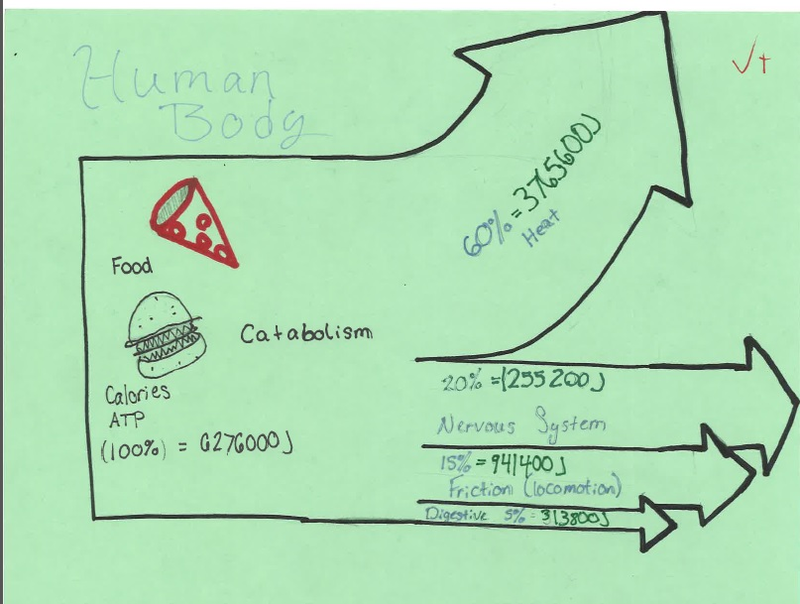 Human
Body
√+
60% = 3765600J
Heat
Food
Catabolism
Calories
ATP
(100%) = 6276000J
20% = 1255200J
Nervous System
15% = 941400J
Friction (locomotion)
Digestive 5% = 313800J